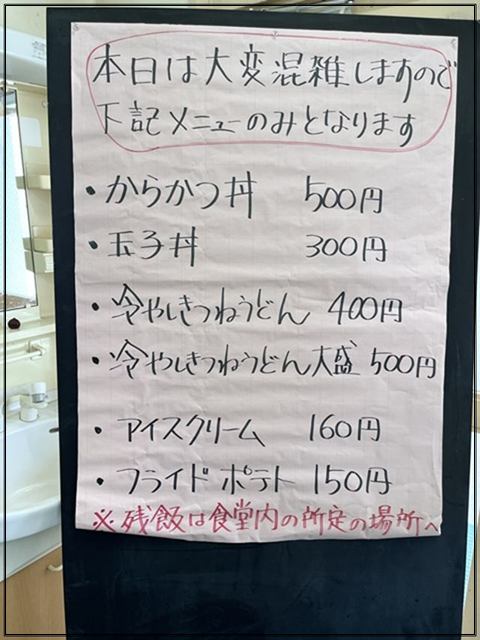 本日は大変混雑しますので
下記メニューのみとなります
・からかつ丼 500円
・玉子丼 300円
・冷やしきつねうどん 400円
・冷やしきつねうどん大盛 500円
・アイスクリーム 160円
・フライドポテト 150円
※残飯は食堂内の所定の場所へ